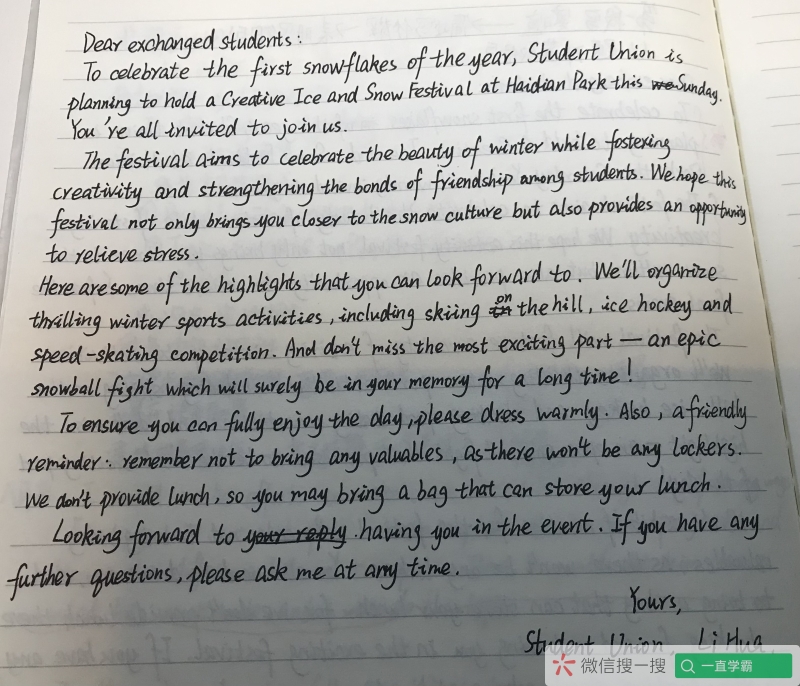 Dear exchanged students:
To celebrate the first snowflakes of the year, Student Union is
planning to hold a Creative Ice and Snow Festival at Haidian Park this we Sunday.
You're all invited to join us.
The festival aims to celebrate the beauty of winter while fostering
creativity and strengthening the bonds of friendship among students. We hope this
festival not only brings you closer to the snow culture but also provides an opportunity
to relieve stress.
Here are some of the highlights that you can look forward to. We'll organize
thrilling winter sports activities, including skiing on the hill, ice hockey and
speed-skating competition. And don't miss the most exciting part — an epic
snowball fight which will surely be in your memory for a long time!
To ensure you can fully enjoy the day, please dress warmly. Also, a friendly
reminder: remember not to bring any valuables, as there won't be any lockers.
We don't provide lunch, so you may bring a bag that can store your lunch.
Looking forward to your reply having you in the event. If you have any
further questions, please ask me at any time.
Yours,
Student Union, Li Hua
微信搜一搜 一直学霸